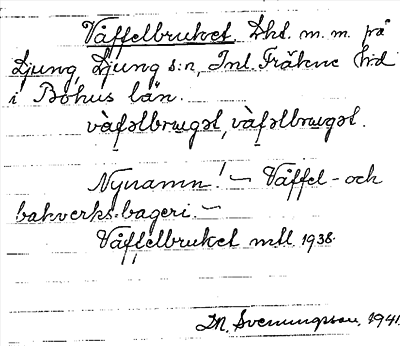 Våffelbruket. Lhl. m. m. på
Ljung, Ljung s:n, Inl. Fräkne hd
i Bohus län.
våfəlbrʉgət, våfəlbrʉgət.
Nynamn! — Våffel- och
bakverks-bageri. —
Våffelbruket mtl 1938.
M. Svenungsson, 1941